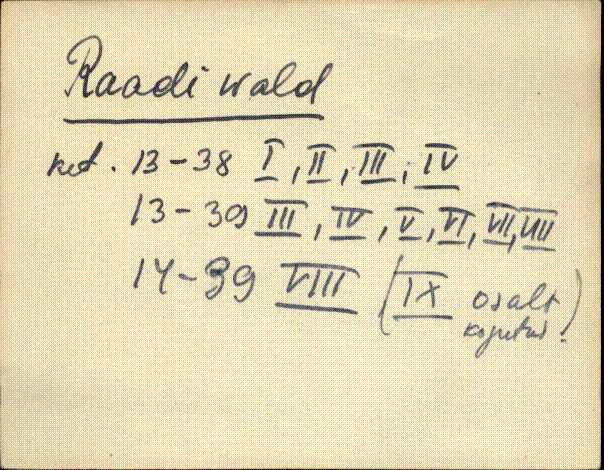 Raadi wald
ket. 13-38 I, II, III, IV
13-39 III, IV, V, VI, VII, VIII
14-39 VIII (IX osalt
kogutud.)